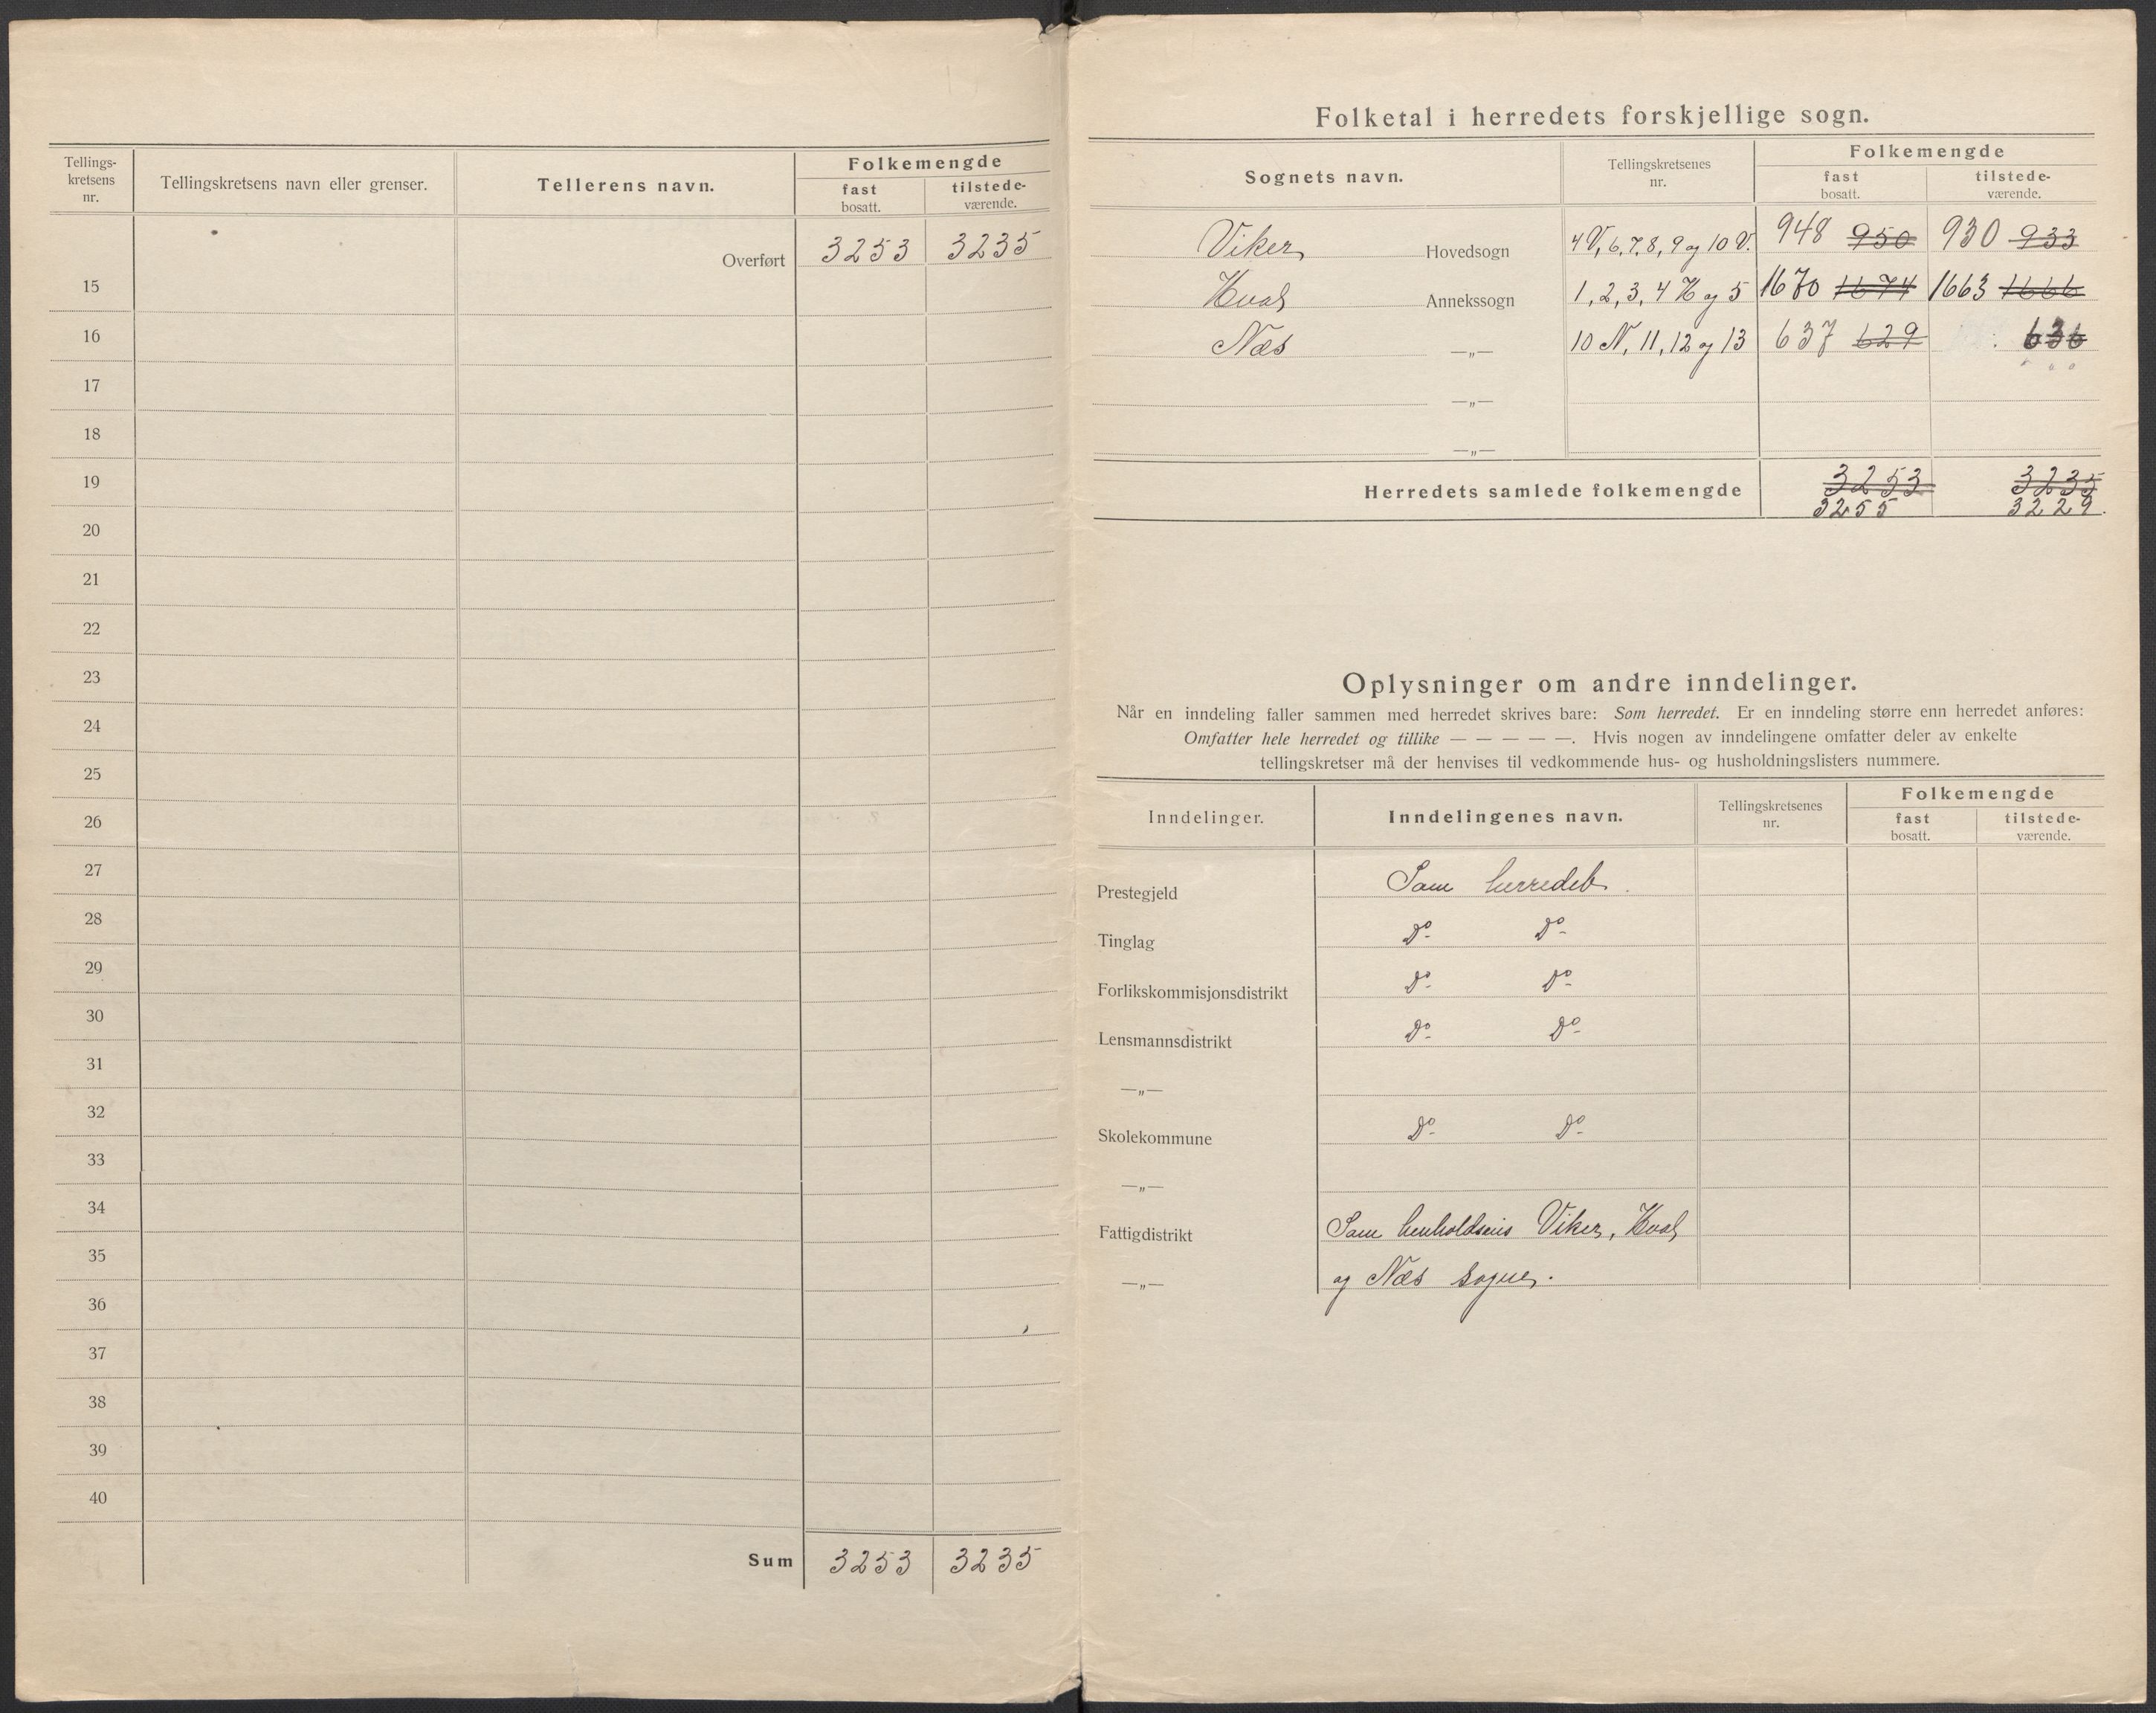 Tellings-
kretsens
nr.
Tellingskretsens navn eller grenser.
Tellerens navn.
Folkemengde
fast
bosatt.
tilstede-
værende.
Overført 3253 3235
15
16
17
18
19
20
21
22
23
24
25
26
27
28
29
30
31
32
33
34
35
36
37
38
39
40
Sum 3253 3235
Folketal i herredets forskjellige sogn.
Sognets navn.
Tellingskretsenes
nr.
Folkemengde
fast
bosatt.
tilstede-
værende.
Viker Hovedsogn 4V, 6, 7, 8, 9 og 10 V. 948 950 930 933
Hval Annekssogn 1, 2, 3, 4 H og 5 1670 1674 1663 1666
Næs —„— 10 N, 11, 12 og 13 637 629 636
—„—
—„—
Herredets samlede folkemengde 3253 3235
3255 3229.
Oplysninger om andre inndelinger.
Når en inndeling faller sammen med herredet skrives bare: Som herredet. Er en inndeling større enn herredet anføres:
Omfatter hele herredet og tillike — — — — —. Hvis nogen av inndelingene omfatter deler av enkelte
tellingskretser må der henvises til vedkommende hus- og husholdningslisters nummere.
Inndelinger.
Inndelingenes navn.
Tellingskretsenes
nr.
Folkemengde
fast
bosatt.
tilstede-
værende.
Prestegjeld Som herredet.
Tinglag Do Do
Forlikskommisjonsdistrikt Do Do
Lensmannsdistrikt Do Do
—„—
Skolekommune Do Do
—„—
Fattigdistrikt Som henholdsvis Viker, Hval
—„— og Næs sogne.